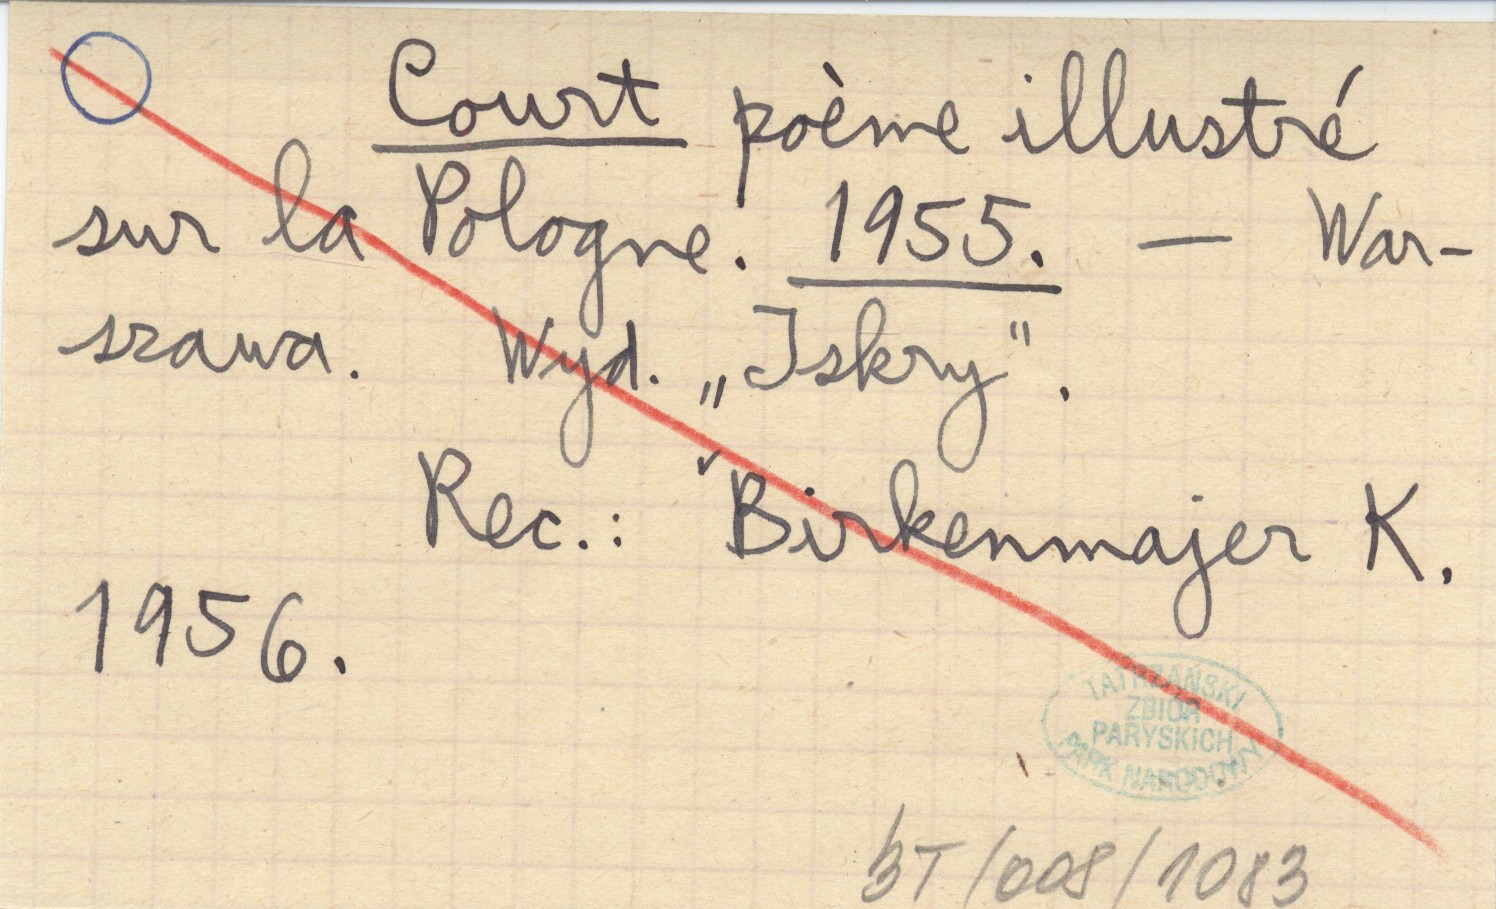 Court poème illustré
sur la Pologne. 1955. — War-
szawa. Wyd. „Iskry".
Rec.: Birkenmajer K.
1956.
TATRZAŃSKI
ZBIÓR
PARYSKICH
PARK NARODOWY
BT/008/1083